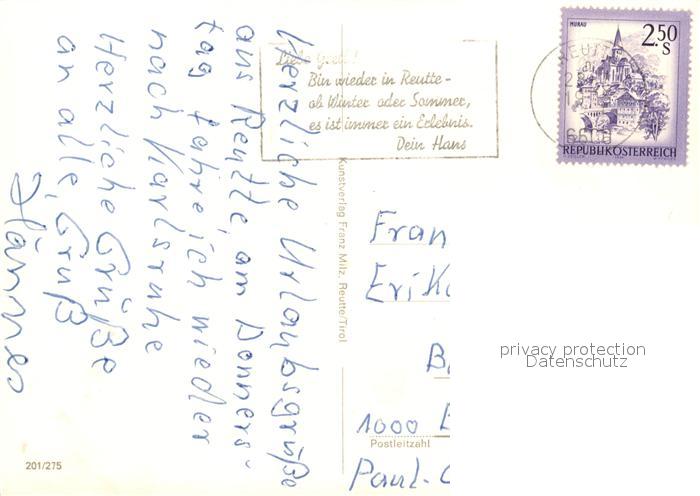 Herzliche Urlaubsgrüße
aus Reutte, am Donners-
tag fahre ich wieder
nach Karlsruhe
Herzliche Grüße
an alle, Gruß
Hannes
Liebe Gretl!
Bin wieder in Reutte -
ob Winter oder Sommer,
es ist immer ein Erlebnis.
Dein Hans
REUTTE
6600
MURAU
2.50
S
REPUBLIK ÖSTERREICH
Kunstverlag Franz Milz, Reutte/Tirol
Frau
Erik
B
1000 B
Postleitzahl
Paul-
201/275
privacy protection
Datenschutz